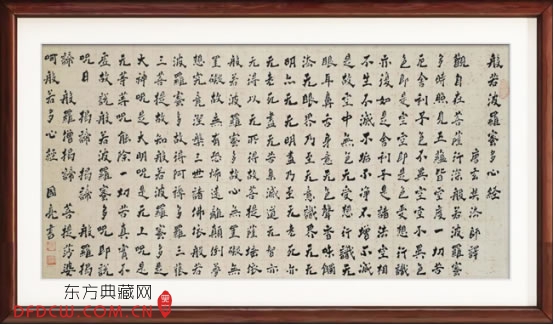 般若波羅蜜多心經
唐玄奘法師譯
觀自在菩薩行深般若波羅蜜
多時照見五蘊皆空度一切苦
厄舍利子色不異空空不異色
色即是空空即是色受想行識
亦復如是舍利子是諸法空相
不生不滅不垢不淨不增不減
是故空中無色无受想行識无
眼耳鼻舌身意无色聲香味觸
法无眼界乃至无意識界无无
明亦无无明盡乃至无老死亦
无老死盡无苦集滅道无智亦
无得以无所得故菩提薩埵依
般若波羅蜜多故心無罣礙無
罣礙故無有恐怖遠離顛倒夢
想究竟涅槃三世諸佛依般若
波羅蜜多故得阿耨多羅三藐
三菩提故知般若波羅蜜多是
大神咒是大明咒是无上咒是
无等等咒能除一切苦真實不
虛故說般若波羅蜜多咒即說
咒曰 揭諦 揭諦 般羅揭
諦 般羅僧揭諦 菩提莎婆
呵般若多心經 國亮書
东方典藏网
DFDCW.COM.CN